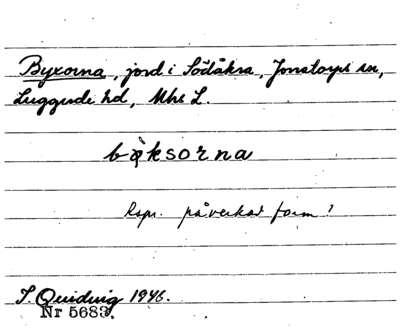 Byxorna, jord i Södåkra, Jonstorps sn,
Luggude hd, Mhs L.
bøksorna
Rspr. påverkad form?
I. Quidvig 1946.
Nr 5683.